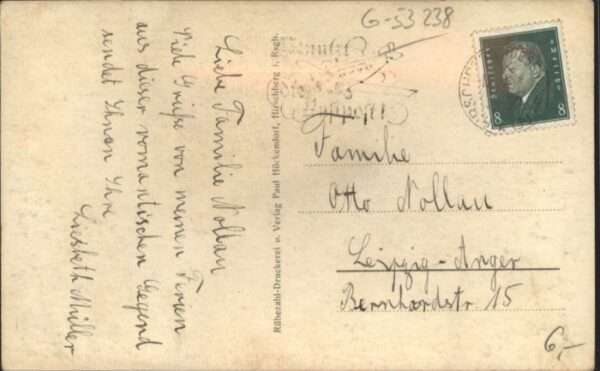 Liebe Familie Nollau
Viele Grüße von meinen Ferien
aus dieser romantischen Gegend
sendet Ihnen Ihre
Liesbeth Müller
Rübezahl-Druckerei u. Verlag Paul Höckendorf, Hirschberg i. Rsgb.
G-53 238
Benutzt
Luftpost!
Deutsches Reich
8 8
Familie
Otto Nollau
Leipzig-Anger
Bernhardstr 15
6,-